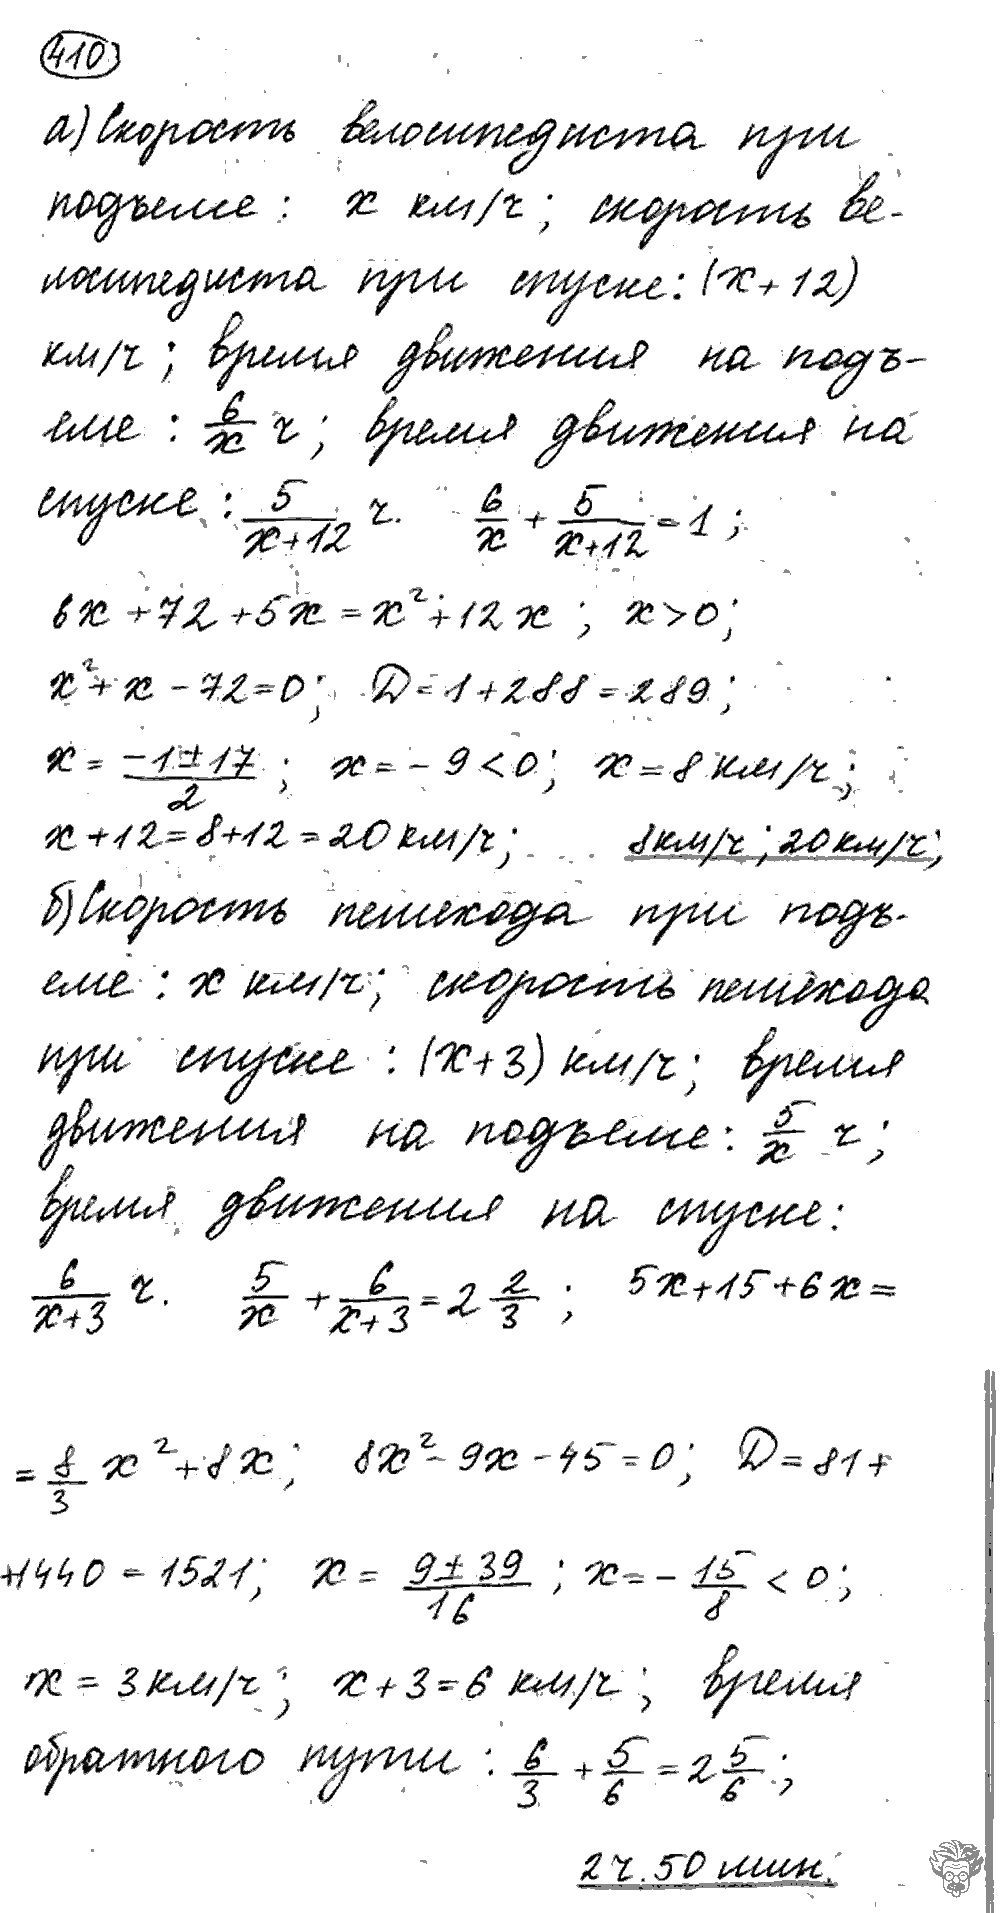 410
а) Скорость велосипедиста при
подъеме: x км/ч; скорость ве-
лосипедиста при спуске: (x+12)
км/ч; время движения на подъ-
еме: 6/x ч; время движения на
спуске: 5/(x+12) ч. 6/x + 5/(x+12) = 1;
6x + 72 + 5x = x² + 12x; x > 0;
x² + x - 72 = 0; D = 1 + 288 = 289;
x = (-1 ± 17)/2; x = -9 < 0; x = 8 км/ч;
x + 12 = 8 + 12 = 20 км/ч; 8 км/ч; 20 км/ч;
б) Скорость пешехода при подъ-
еме: x км/ч; скорость пешехода
при спуске: (x+3) км/ч; время
движения на подъеме: 5/x ч;
время движения на спуске:
6/(x+3) ч. 5/x + 6/(x+3) = 2 2/3; 5x + 15 + 6x =
= 8/3 x² + 8x; 8x² - 9x - 45 = 0; D = 81 +
+1440 = 1521; x = (9 ± 39)/16; x = -15/8 < 0;
x = 3 км/ч; x + 3 = 6 км/ч; время
обратного пути: 6/3 + 5/6 = 2 5/6;
2 ч. 50 мин.